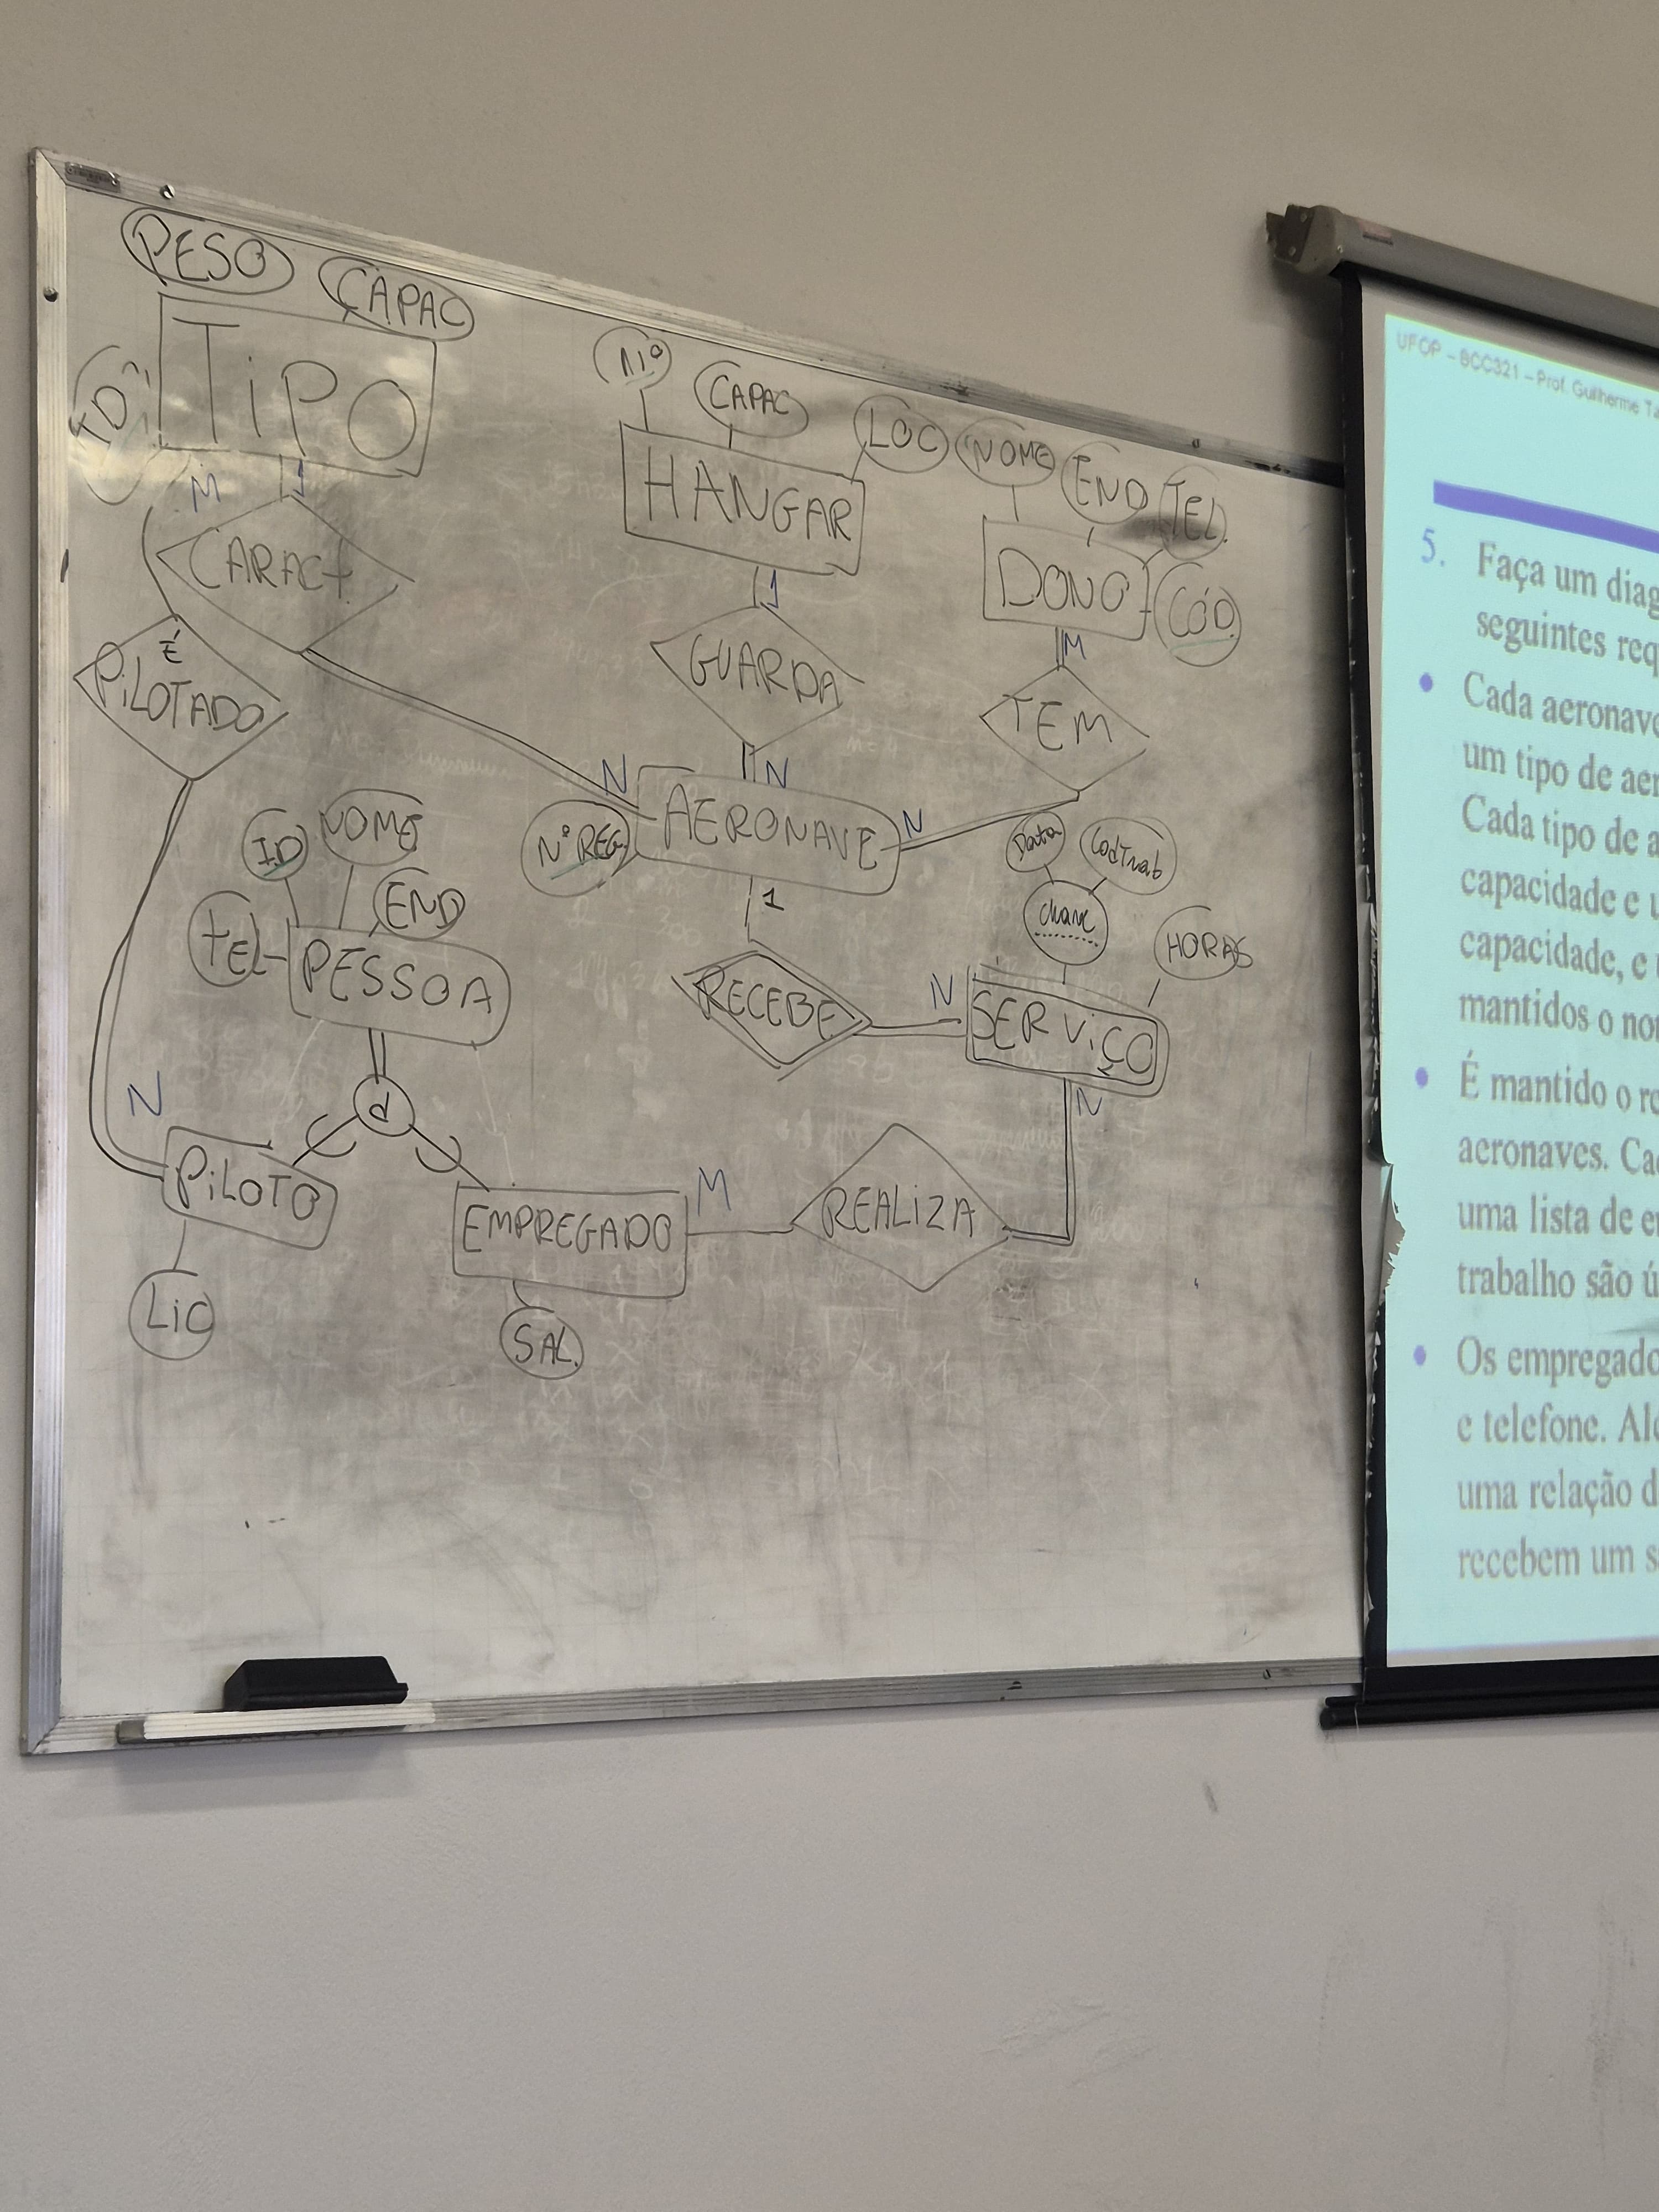 PESO
CAPAC
TIPO
ID
M
1
CARACT.
É
PILOTADO
Nº
CAPAC
LOC
HANGAR
1
GUARDA
N
NOME
END
TEL.
DONO
CÓD.
M
TEM
N
N
Nº REG.
AERONAVE
1
ID
NOME
TEL
END
PESSOA
d
N
PILOTO
LIC
EMPREGADO
SAL.
M
REALIZA
RECEBE
N
Data
CodTrab
chave
HORAS
SERVIÇO
N
UFOP – BCC321 – Prof. Guilherme
5. Faça um diag
seguintes req
• Cada aeronave
um tipo de aer
Cada tipo de a
capacidade e u
capacidade, e
mantidos o no
• É mantido o re
aeronaves. Ca
uma lista de e
trabalho são ú
• Os empregado
e telefone. Al
uma relação d
recebem um s